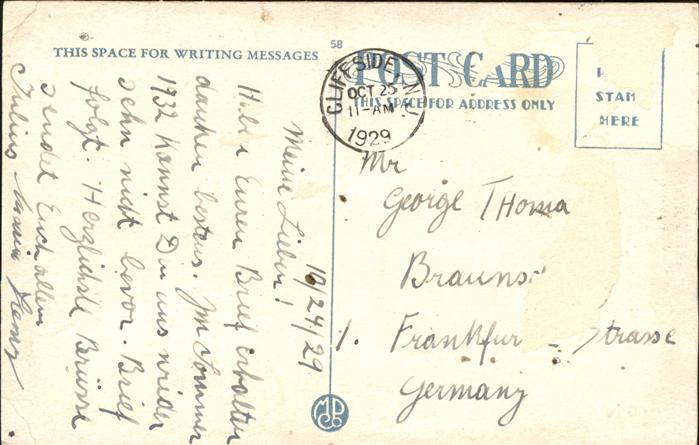 THIS SPACE FOR WRITING MESSAGES
58
POST CARD
THIS SPACE FOR ADDRESS ONLY
STAM
HERE
CLIFFSIDE, N.J.
OCT 25
11-AM
1929
10/24/29
Meine Lieben!
Habe Euren Brief erhalten
danken bestens. Im Sommer
1932 kannst Du uns wieder
sehn nicht bevor. Brief
folgt. Herzlichste Grüsse
sendet Euch allen
Julius
Mr
George Thoma
Brauns
1. Frankfur Strasse
Germany